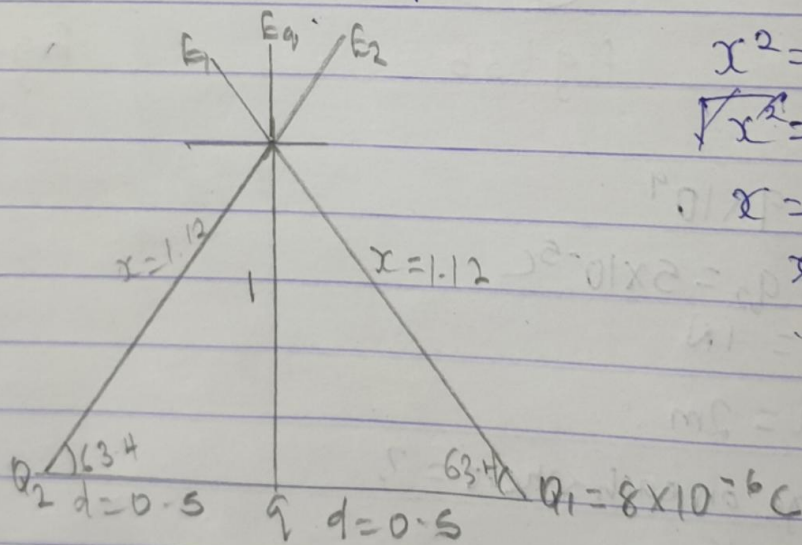 E₁ Eq E₂
x² =
√x² =
x =
x = 1.12
x = 1.12
1
63.4
63.4
Q₂ d = 0.5 q d = 0.5 Q₁ = 8×10⁻⁶C